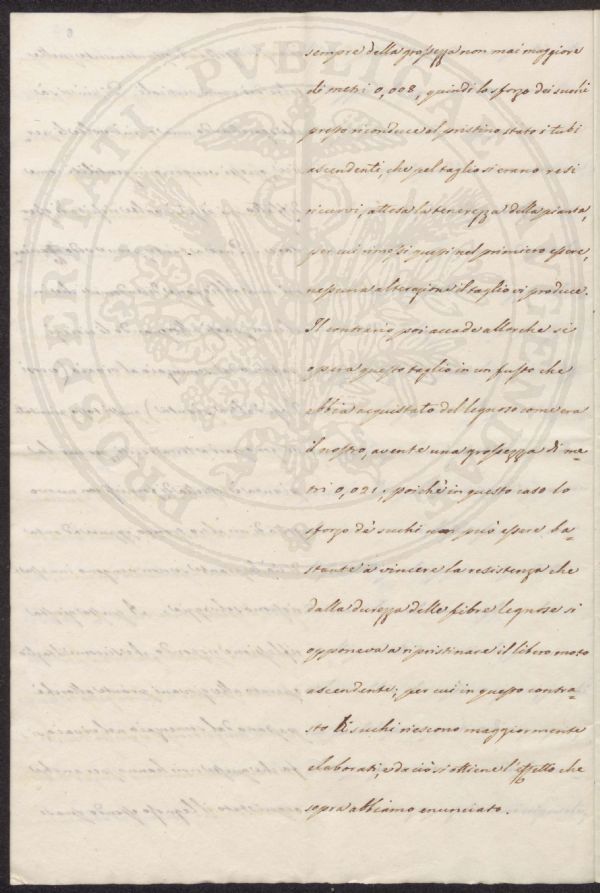 sempre della grossezza non mai maggiore
di metri 0,008, quindi lo sforzo dei suchi
presto riconduce al pristino stato i tubi
ascendenti, che pel taglio si erano resi
ricurvi, attesa la tenerezza della pianta,
per cui rimessi questi nel primiero essere,
nessuna alterazione il taglio vi produce.
Il contrario poi accade allorche si
opera questo taglio in un fusto che
abbia acquistato del legnoso come era
il nostro, avente una grossezza di me-
tri 0,021, poichè in questo caso lo
sforzo de' suchi non può essere ba-
stante a vincere la resistenza che
dalla durezza delle fibre legnose si
opponeva a ripristinare il libero moto
ascendente; per cui in questo contra-
sto li suchi riescono maggiormente
elaborati, e da ciò si ottiene l'effetto che
sopra abbiamo enunciato.
PROSPERITATI PVBLICAE AVGENDAE